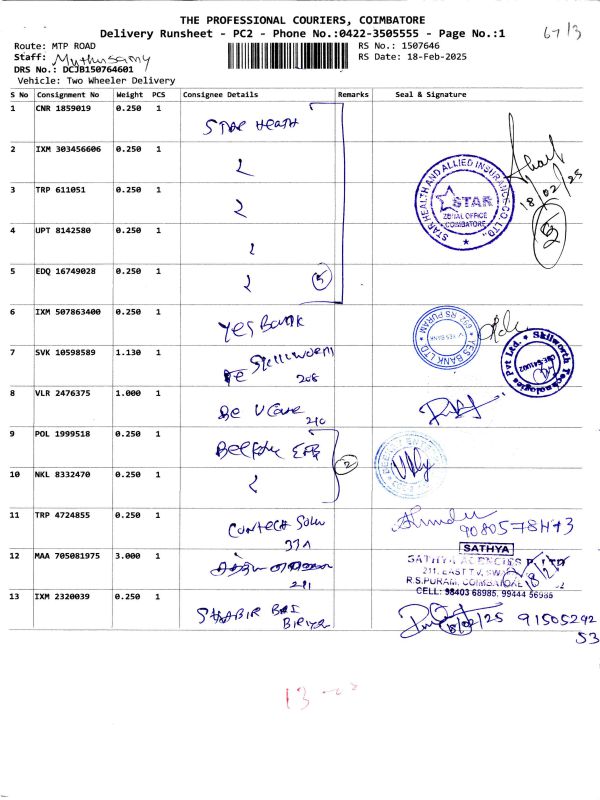 THE PROFESSIONAL COURIERS, COIMBATORE
Delivery Runsheet - PC2 - Phone No.:0422-3505555 - Page No.:1
67/3
Route: MTP ROAD
RS No.: 1507646
Staff: Muthusamy
RS Date: 18-Feb-2025
DRS No.: DCJB150764601
Vehicle: Two Wheeler Delivery
S No Consignment No Weight PCS Consignee Details Remarks Seal & Signature
1 CNR 1859019 0.250 1 STAR HEATH
2 IXM 303456606 0.250 1
3 TRP 611051 0.250 1
STAR HEALTH AND ALLIED INSURANCE CO. LTD.,
STAR
ZONAL OFFICE
COIMBATORE
18/02/25
4 UPT 8142580 0.250 1
5 EDQ 16749028 0.250 1 5
6 IXM 507863400 0.250 1 YES BANK
YES BANK LTD. RS PURAM
YES BANK
7 SVK 10598589 1.130 1
208
Skilworth Technologies Pvt Ltd.
8 VLR 2476375 1.000 1 Be U Care
210
9 POL 1999518 0.250 1
2
10 NKL 8332470 0.250 1
11 TRP 4724855 0.250 1 CONTECH Solu
37A
12 MAA 705081975 3.000 1
211
SATHYA
SATHYA AGENCIES P LTD
211, EAST T.V. SWAMY
R.S.PURAM, COIMBATORE
CELL: 98403 68985, 99444 56985
13 IXM 2320039 0.250 1 SHABIR BAI
18/02/25 91505292
53
13